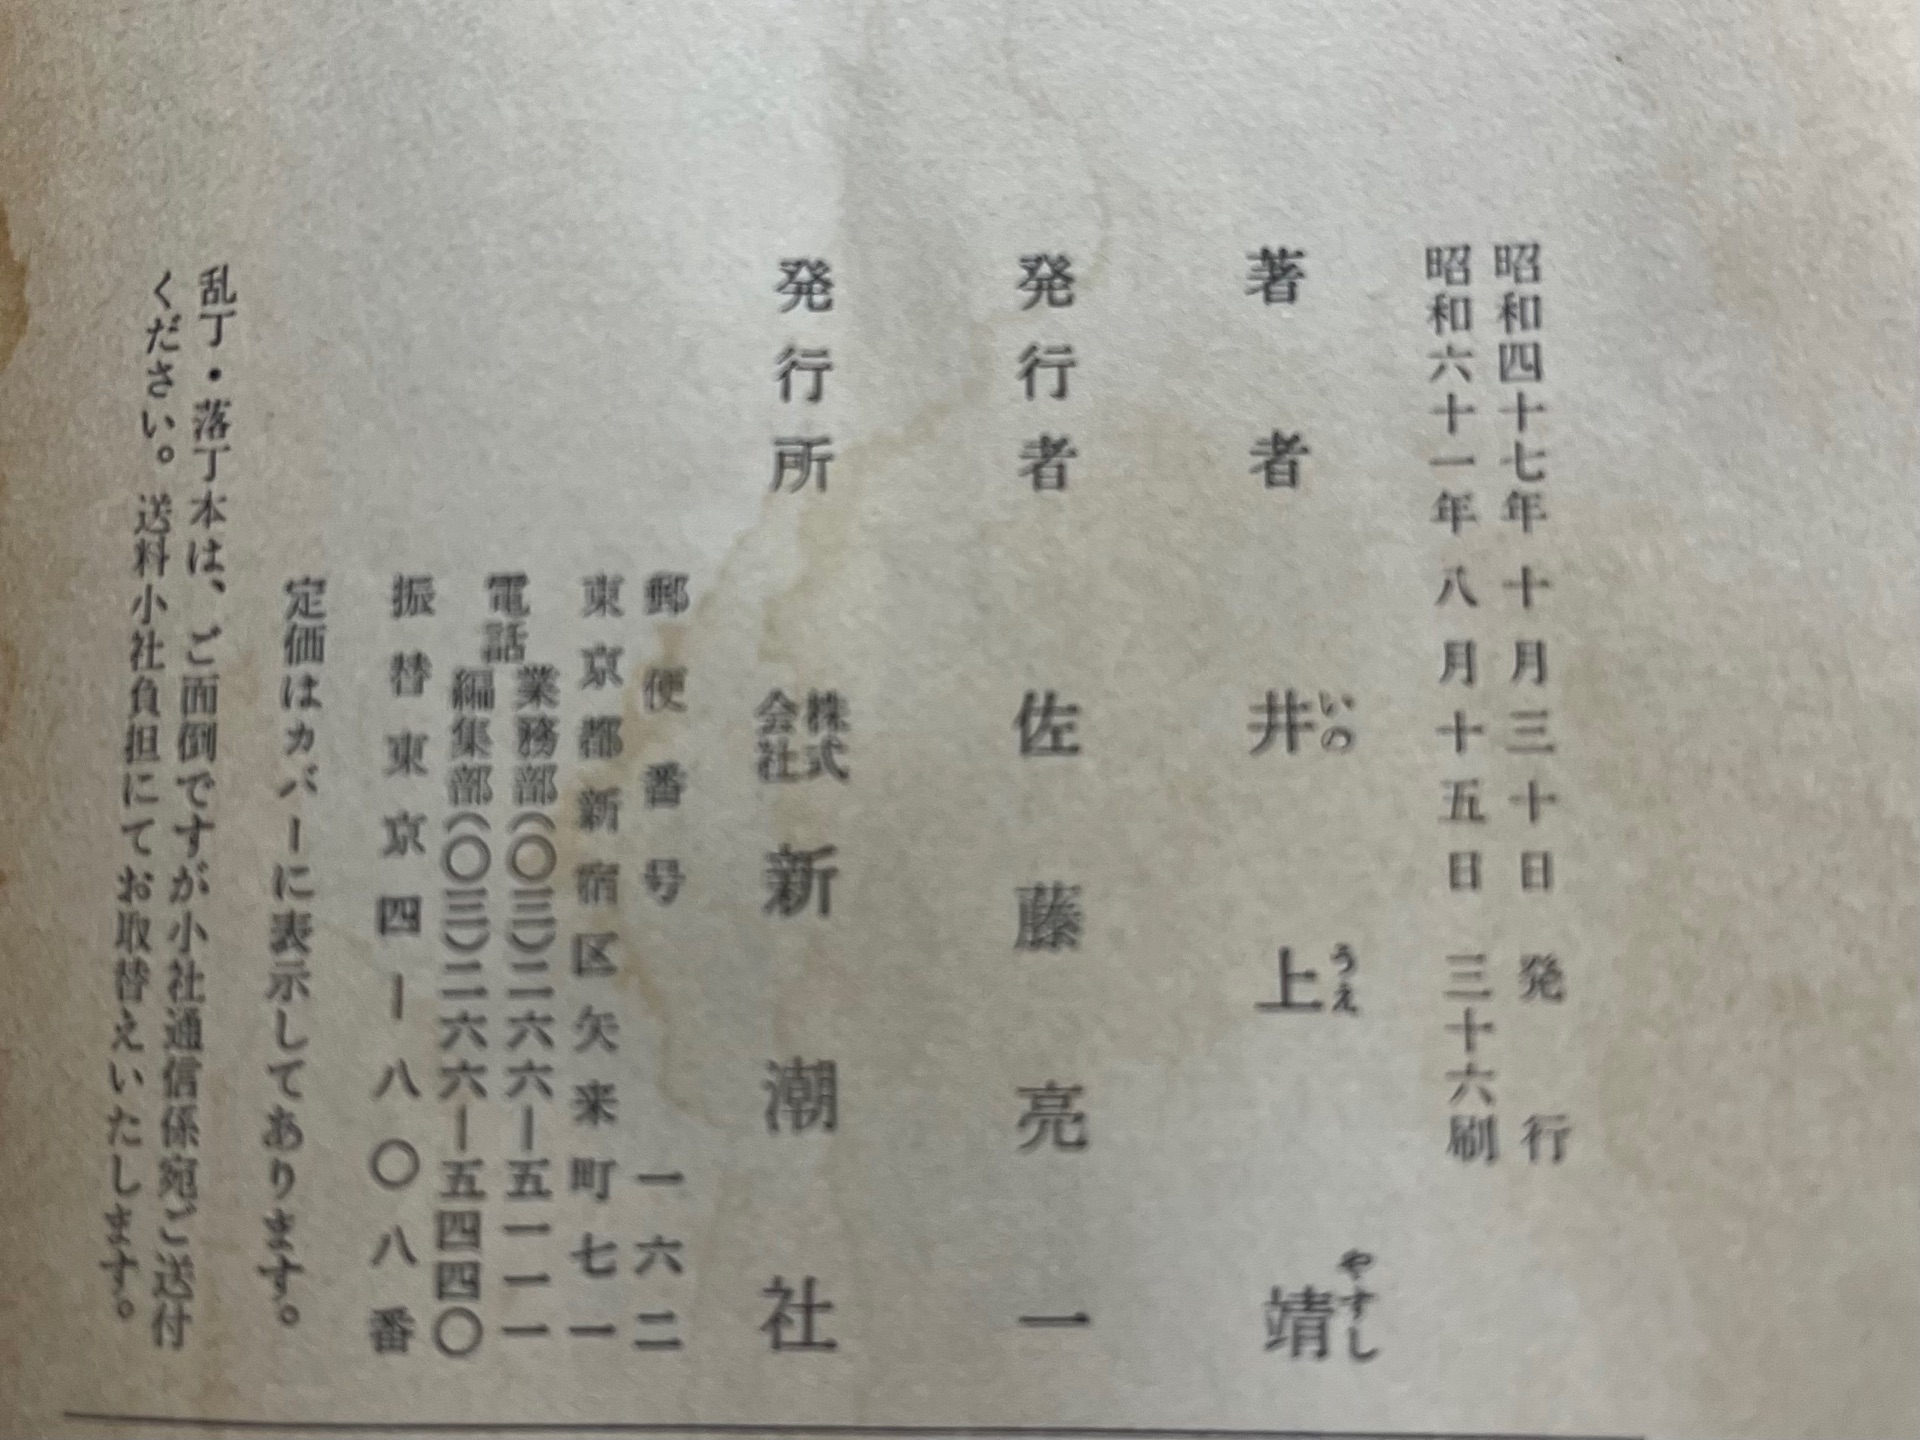 昭和四十七年 十月三十日 発行
昭和六十一年 八月十五日 三十六刷
著者 井上靖
いのうえ やすし
発行者 佐藤亮一
発行所 株式会社 新潮社
郵便番号 一六二
東京都新宿区矢来町七一
電話 業務部(〇三)二六六―五一一一
編集部(〇三)二六六―五四四〇
振替東京四―八〇八番
定価はカバーに表示してあります。
乱丁・落丁本は、ご面倒ですが小社通信係宛ご送付
ください。送料小社負担にてお取替えいたします。